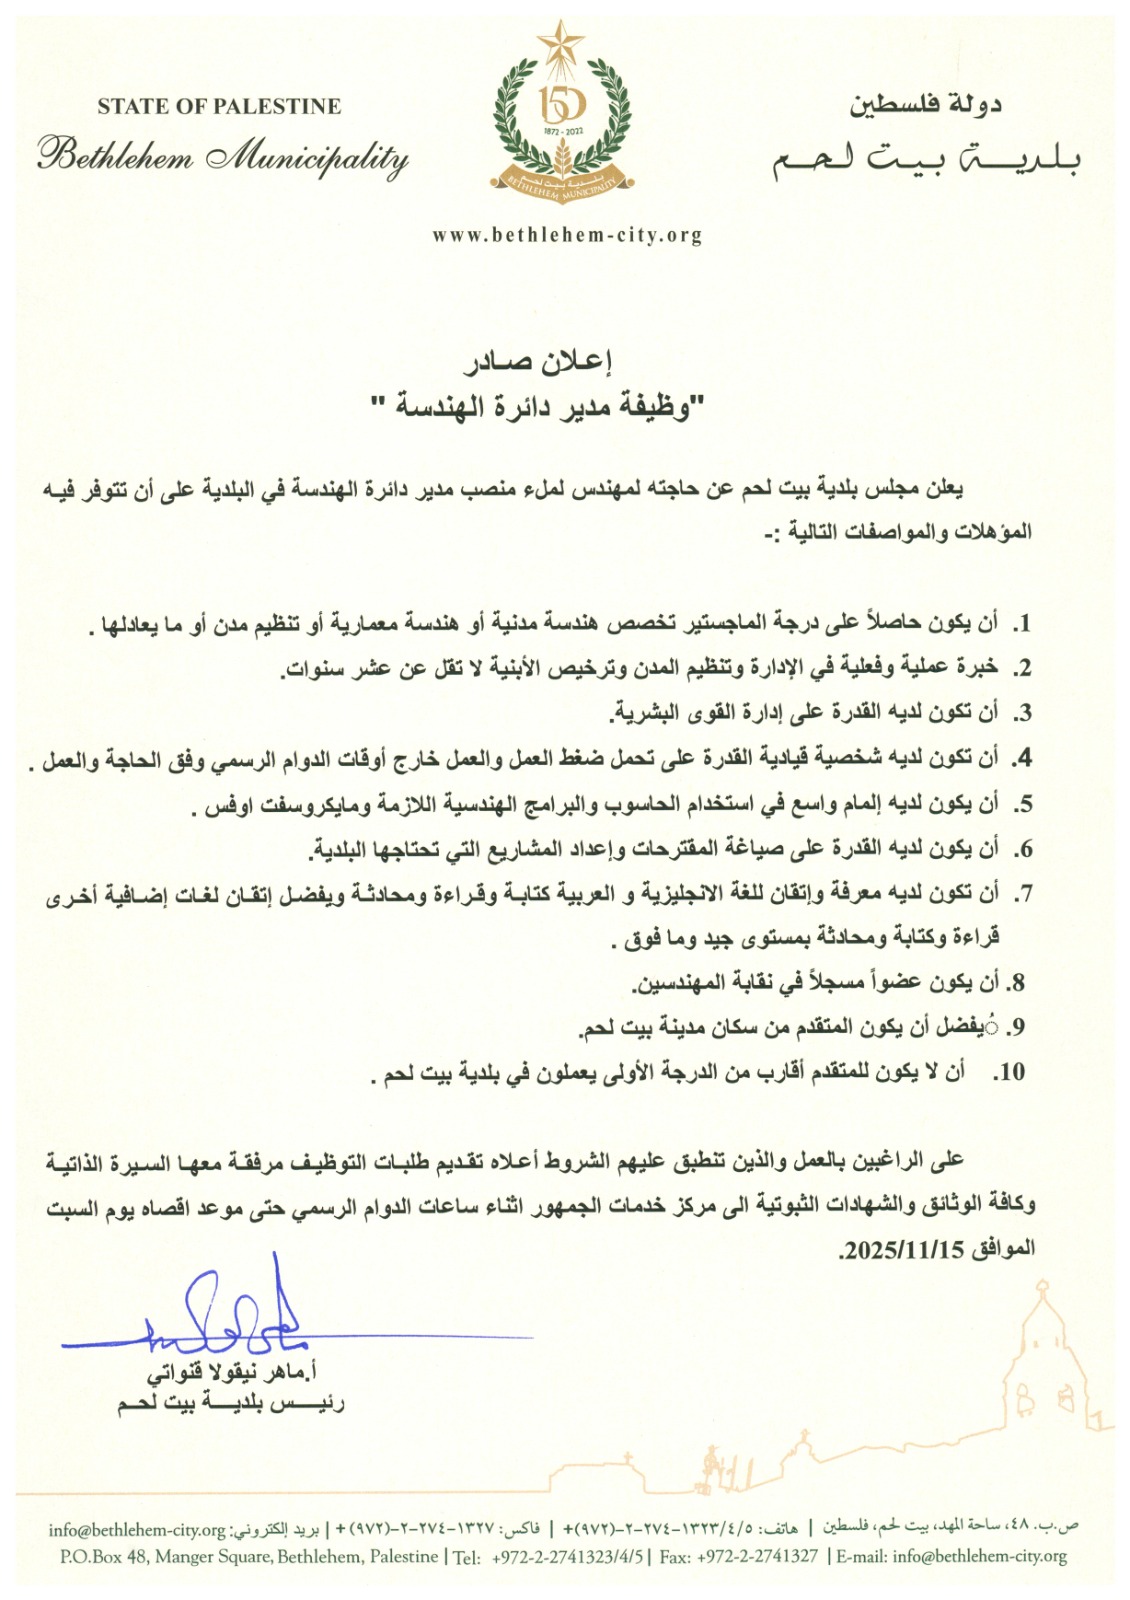 STATE OF PALESTINE
Bethlehem Municipality
150
1872 - 2022
بلدية بيت لحم
BETHLEHEM MUNICIPALITY
دولة فلسطين
بلدية بيت لحم
www.bethlehem-city.org
إعلان صادر
"وظيفة مدير دائرة الهندسة "
يعلن مجلس بلدية بيت لحم عن حاجته لمهندس لملء منصب مدير دائرة الهندسة في البلدية على أن تتوفر فيه
المؤهلات والمواصفات التالية :-
1. أن يكون حاصلاً على درجة الماجستير تخصص هندسة مدنية أو هندسة معمارية أو تنظيم مدن أو ما يعادلها .
2. خبرة عملية وفعلية في الإدارة وتنظيم المدن وترخيص الأبنية لا تقل عن عشر سنوات.
3. أن تكون لديه القدرة على إدارة القوى البشرية.
4. أن تكون لديه شخصية قيادية القدرة على تحمل ضغط العمل والعمل خارج أوقات الدوام الرسمي وفق الحاجة والعمل .
5. أن يكون لديه إلمام واسع في استخدام الحاسوب والبرامج الهندسية اللازمة ومايكروسفت اوفس .
6. أن يكون لديه القدرة على صياغة المقترحات وإعداد المشاريع التي تحتاجها البلدية.
7. أن تكون لديه معرفة وإتقان للغة الانجليزية و العربية كتابة وقراءة ومحادثة ويفضل إتقان لغات إضافية أخرى
قراءة وكتابة ومحادثة بمستوى جيد وما فوق .
8. أن يكون عضواً مسجلاً في نقابة المهندسين.
9. ُيفضل أن يكون المتقدم من سكان مدينة بيت لحم.
10. أن لا يكون للمتقدم أقارب من الدرجة الأولى يعملون في بلدية بيت لحم .
على الراغبين بالعمل والذين تنطبق عليهم الشروط أعلاه تقديم طلبات التوظيف مرفقة معها السيرة الذاتية
وكافة الوثائق والشهادات الثبوتية الى مركز خدمات الجمهور اثناء ساعات الدوام الرسمي حتى موعد اقصاه يوم السبت
الموافق 2025/11/15.
أ.ماهر نيقولا قنواتي
رئيس بلدية بيت لحم
ص.ب. ٤٨، ساحة المهد، بيت لحم، فلسطين | هاتف: ٥/٤/١٣٢٣-٢٧٤-٢-(٩٧٢)+ | فاكس: ١٣٢٧-٢٧٤-٢-(٩٧٢)+ | بريد إلكتروني: info@bethlehem-city.org
P.O.Box 48, Manger Square, Bethlehem, Palestine | Tel: +972-2-2741323/4/5 | Fax: +972-2-2741327 | E-mail: info@bethlehem-city.org